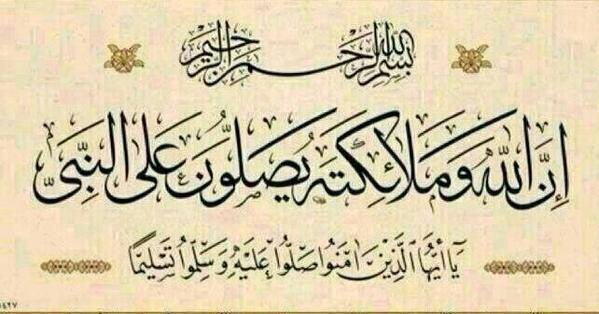 بِسْمِ اللهِ الرَّحْمٰنِ الرَّحِيمِ
إِنَّ اللهَ وَمَلَائِكَتَهُ يُصَلُّونَ عَلَى النَّبِيِّ
يَا أَيُّهَا الَّذِينَ اٰمَنُوا صَلُّوا عَلَيْهِ وَسَلِّمُوا تَسْلِيمًا
١٤٢٧